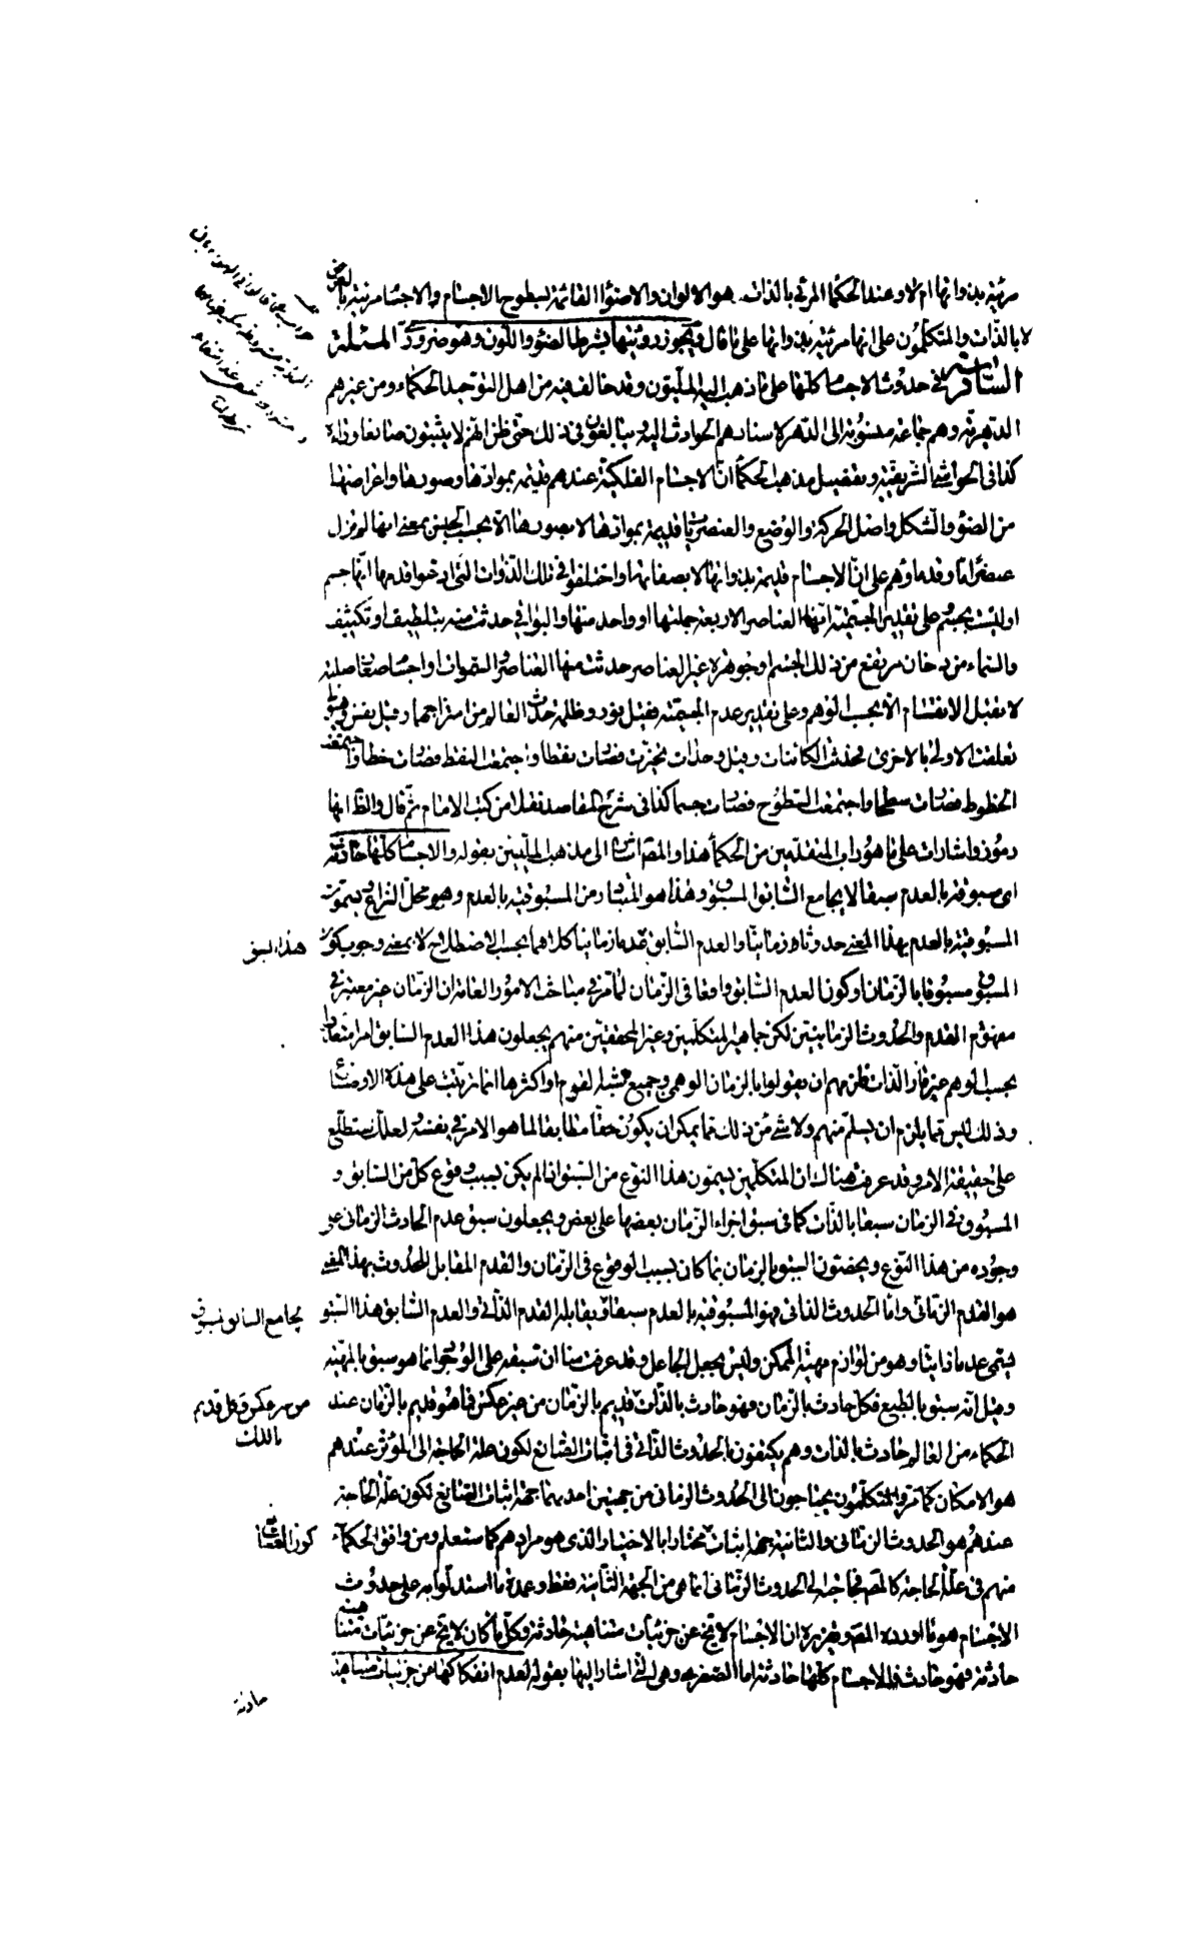 مرئية بذواتها ام لا وعند الحكما المرئى بالذات هو الالوان والاضوا القائمة بسطوح الاجسام والاجسام مرئية بالعرض
لا بالذات والمتكلمون على انها مرئية بذواتها على ما قال ويجوز رؤيتها بشرط الضوء واللون وهو ضرورى المسئلة
السادسة فى حدوث الاجسام كلها على ما ذهب اليه المليون وقد خالف فيه من اهل التوحيد الحكماء ومن غيرهم
الدهرية وهم جماعة منسوبة الى الدهر لاسنادهم الحوادث اليه ويبالغون فى ذلك حتى ظن انهم لا يثبتون صانعا وراءه
كذا فى الحواشى الشريفية وتفصيل مذهب الحكما ان الاجسام الفلكية عندهم قديمة بموادها وصورها واعراضها
من الضوء والشكل واصل الحركة والوضع والعنصريات قديمة بموادها لا بصورها الا بحسب الجنس بمعنى انها لم تزل
عنصرا ما وقدماؤهم على ان الاجسام قديمة بذواتها لا بصفاتها واختلفوا فى تلك الذوات التى ادعوا قدمها انها جسم
او ليست بجسم على تقدير الجسمية انها العناصر الاربعة جملتها او واحد منها والبواقى حدثت منه بتلطيف او تكثيف
والسماء من دخان مرتفع من ذلك الجسم او جوهرة غير العناصر حدثت منها العناصر والسموات او اجسام صغار صلبة
لا تقبل الانقسام الا بحسب الوهم وعلى تقدير عدم الجسمية فقيل نور وظلمة حدث العالم من امتزاجهما وقيل نفس وهيولى
تعلقت الاولى بالاخرى فحدثت الكائنات وقيل وحدات تحيزت فصارت نقطا واجتمعت النقط فصارت خطا واجتمعت
الخطوط فصارت سطحا واجتمعت السطوح فصارت جسما كذا فى شرح المقاصد نقلا من كتب الامام ثم قال والظ انها
رموز واشارات على ما هو داب المتقدمين من الحكما هذا والمصـ اشار الى مذهب المليين بقوله والاجسام كلها حادثة
اى مسبوقة بالعدم سبقا لا يجامع السابق المسبوق وهذا هو المتبادر من المسبوقية بالعدم وهو محل النزاع ويسمون
المسبوقية بالعدم بهذا المعنى حدوثا زمانيا والعدم السابق عدما زمانيا كلاهما بحسب الاصطلاح لا بمعنى وجوب كون
هذا السبق
المسبوق مسبوقا بالزمان او كون العدم السابق واقعا فى الزمان لما مر فى مباحث الامور العامة ان الزمان غير معتبر فى
مفهوم القدم والحدوث الزمانيتين لكن جماهير المتكلمين وغير المحققين منهم يجعلون هذا العدم السابق امرا متقدرا
بحسب الوهم غير قار الذات فلزمهم ان يقولوا بالزمان الوهمى وجميع شبه القوم او اكثرها انما ترتبت على هذه الاوضاع
وذلك ليس مما يلزم ان يسلم منهم ولا شئ من ذلك مما يمكن ان يكون حقا مطابقا لما هو الامر فى نفسه لعلك ستطلع
على حقيقة الامر وقد عرفت هناك ان المتكلمين يسمون هذا النوع من السبق اذا لم يكن بسبب وقوع كل من السابق و
المسبوق فى الزمان سبقا بالذات كما فى سبق اجزاء الزمان بعضها على بعض ويجعلون سبق عدم الحادث الزمانى على
وجوده من هذا النوع ويخصون السبق بالزمان بما كان بسبب الوقوع فى الزمان والقدم المقابل للحدوث بهذا المعنى
هو القدم الزمانى واما الحدوث الذاتى فهو المسبوقية بالعدم سبقا ويقابله القدم الذاتى والعدم السابق هذا السبق
يجامع السابق المسبوق
يسمى عدما ذاتيا وهو من لوازم مهية الممكن وليس بجعل الجاعل وقد عرفت منا ان سبقه على الوجود انما هو سبق بالمهية
وقيل انه سبق بالطبع فكل حادث بالزمان فهو حادث بالذات قديم بالزمان من غير عكس فما هو قديم بالزمان عند
من غير عكس وكل قديم
بالذات
الحكماء من العالم حادث بالذات وهم يكتفون بالحدوث الذاتى فى اثبات الصانع لكون علة الحاجة الى المؤثر عندهم
هو الامكان كما مر والمتكلمون يحتاجون الى الحدوث الزمانى من جهتين احديهما جهة اثبات الصانع لكون علة الحاجة
عندهم هو الحدوث الزمانى والثانية جهة اثبات مختارا بالاختيار الذى هو مرادهم كما ستعلم ومن وافق الحكماء
كون الصانع
منهم فى علة الحاجة كالمصـ فحاجته الى الحدوث الزمانى انما هى من الجهة الثانية فقط وعمدة ما استدلوا به على حدوث
الاجسام هو ما اورده المصـ وتقريره ان الاجسام لا تخ عن جزئيات متناهية حادثة وكل ما كان لا يخ عن جزئيات متناهية
حادثة فهو حادث فالاجسام كلها حادثة اما الصغرى وهى التى اشار اليها بقوله لعدم انفكاكها من جزئيات متناهية
حادثة